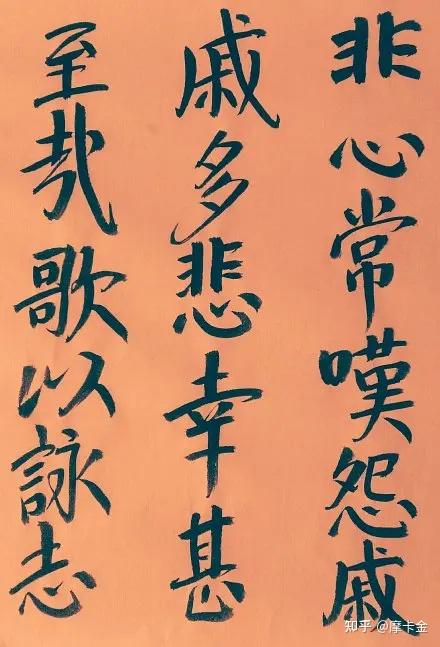 非心常嘆怨戚
戚多悲幸甚
至哉歌以詠志
知乎 @摩卡金